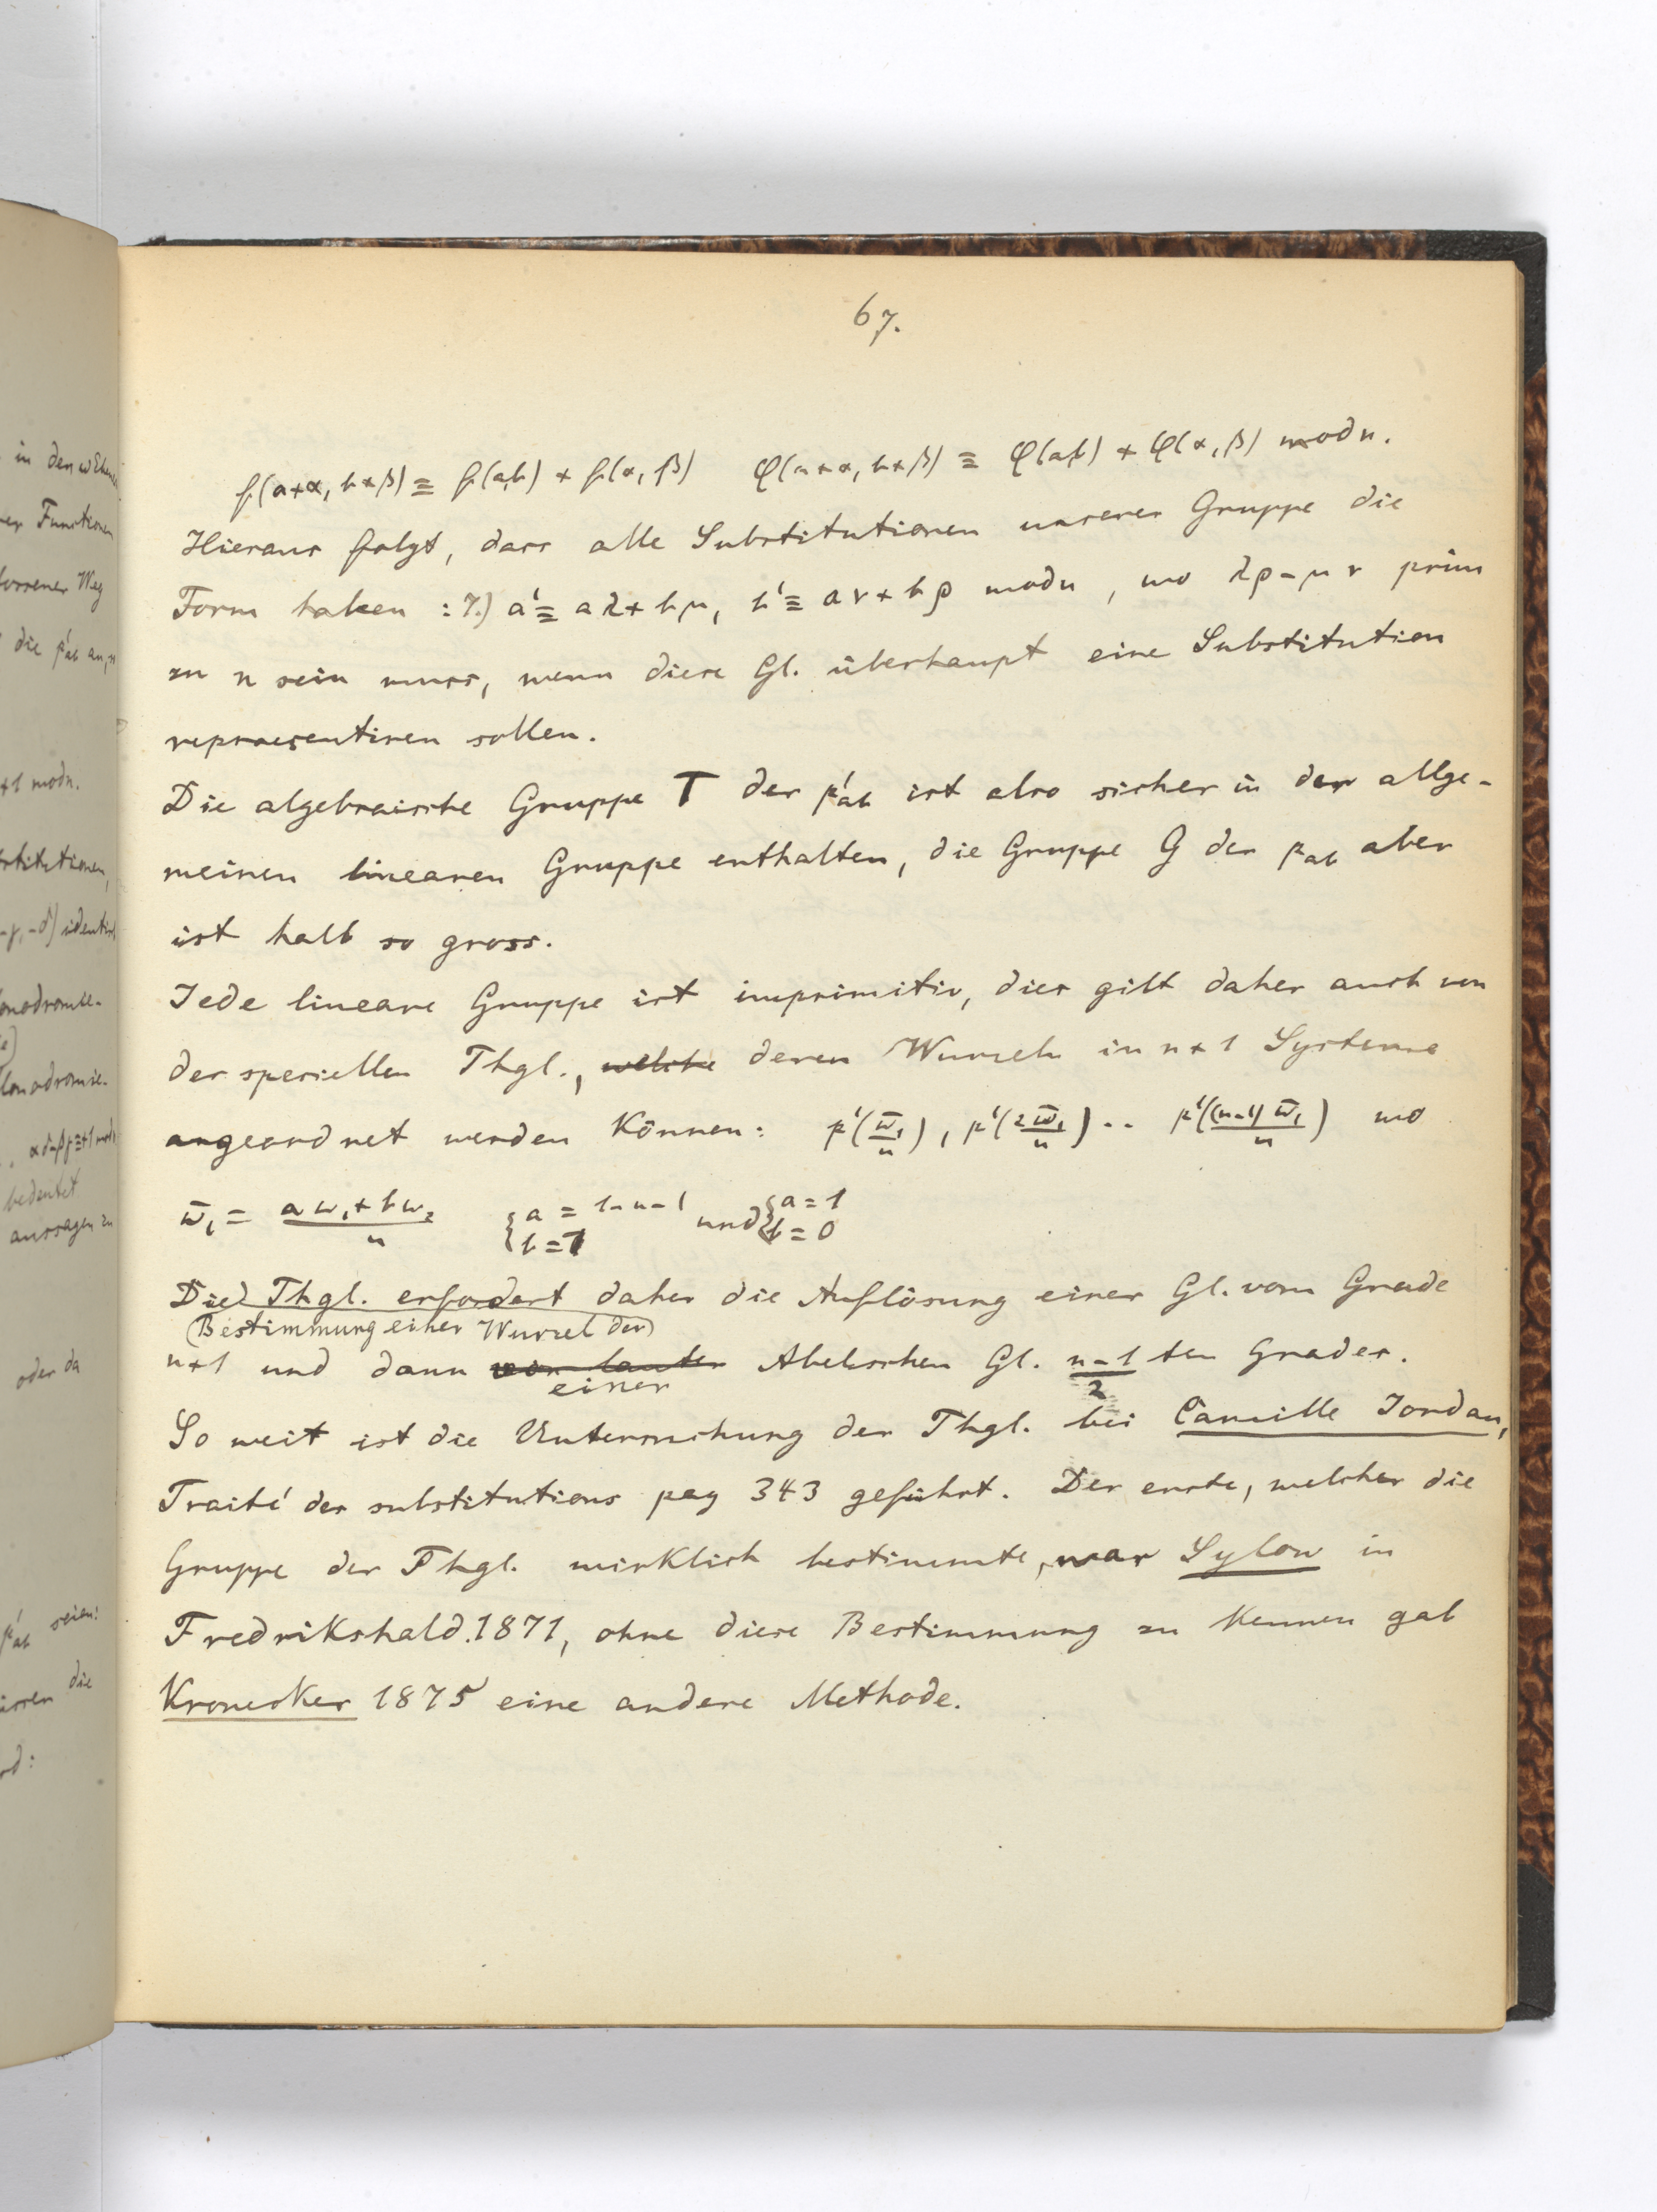 67.
f(a+α, b+β) ≡ f(a,b) + f(α, β)   φ(a+α, b+β) ≡ φ(a,b) + φ(α, β) mod n.
Hieraus folgt, dass alle Substitutionen unserer Gruppe die
Form haben : 7.) a' ≡ aλ + bμ, b' ≡ aν + bρ mod n , wo λρ - μν prim
zu n sein muss, wenn diese Gl. überhaupt eine Substitution
repraesentiren sollen.
Die algebraische Gruppe T der p'ab ist also sicher in der allge-
meinen linearen Gruppe enthalten, die Gruppe G der pab aber
ist halb so gross.
Jede lineare Gruppe ist imprimitiv, dies gilt daher auch von
der speciellen Thgl., welche deren Wurzeln in n+1 Systeme
angeordnet werden können: p'(ω̄₁/n), p'(2ω̄₁/n) .. p'((n-1)ω̄₁/n) wo
ω̄₁ = (aω₁ + bω₂)/n   {a = 1-n-1 b=1 und {a=1 b=0
Die Thgl. erfordert daher die Auflösung einer Gl. vom Grade
(Bestimmung einer Wurzel der)
n+1 und dann von lauter Abelschen Gl. (n-1)/2 ten Grades.
einer
So weit ist die Untersuchung der Thgl. bei Camille Jordan,
Traité des substitutions pag 343 geführt. Der erste, welcher die
Gruppe der Thgl. wirklich bestimmte, war Sylow in
Fredrikshald. 1871, ohne diese Bestimmung zu kennen gab
Kronecker 1875 eine andere Methode.
in den
Functionen
Weg
die p'ab an,
+1 mod n.
identisch
bedeutet
aussagen zu
oder da
p'ab seien:
die